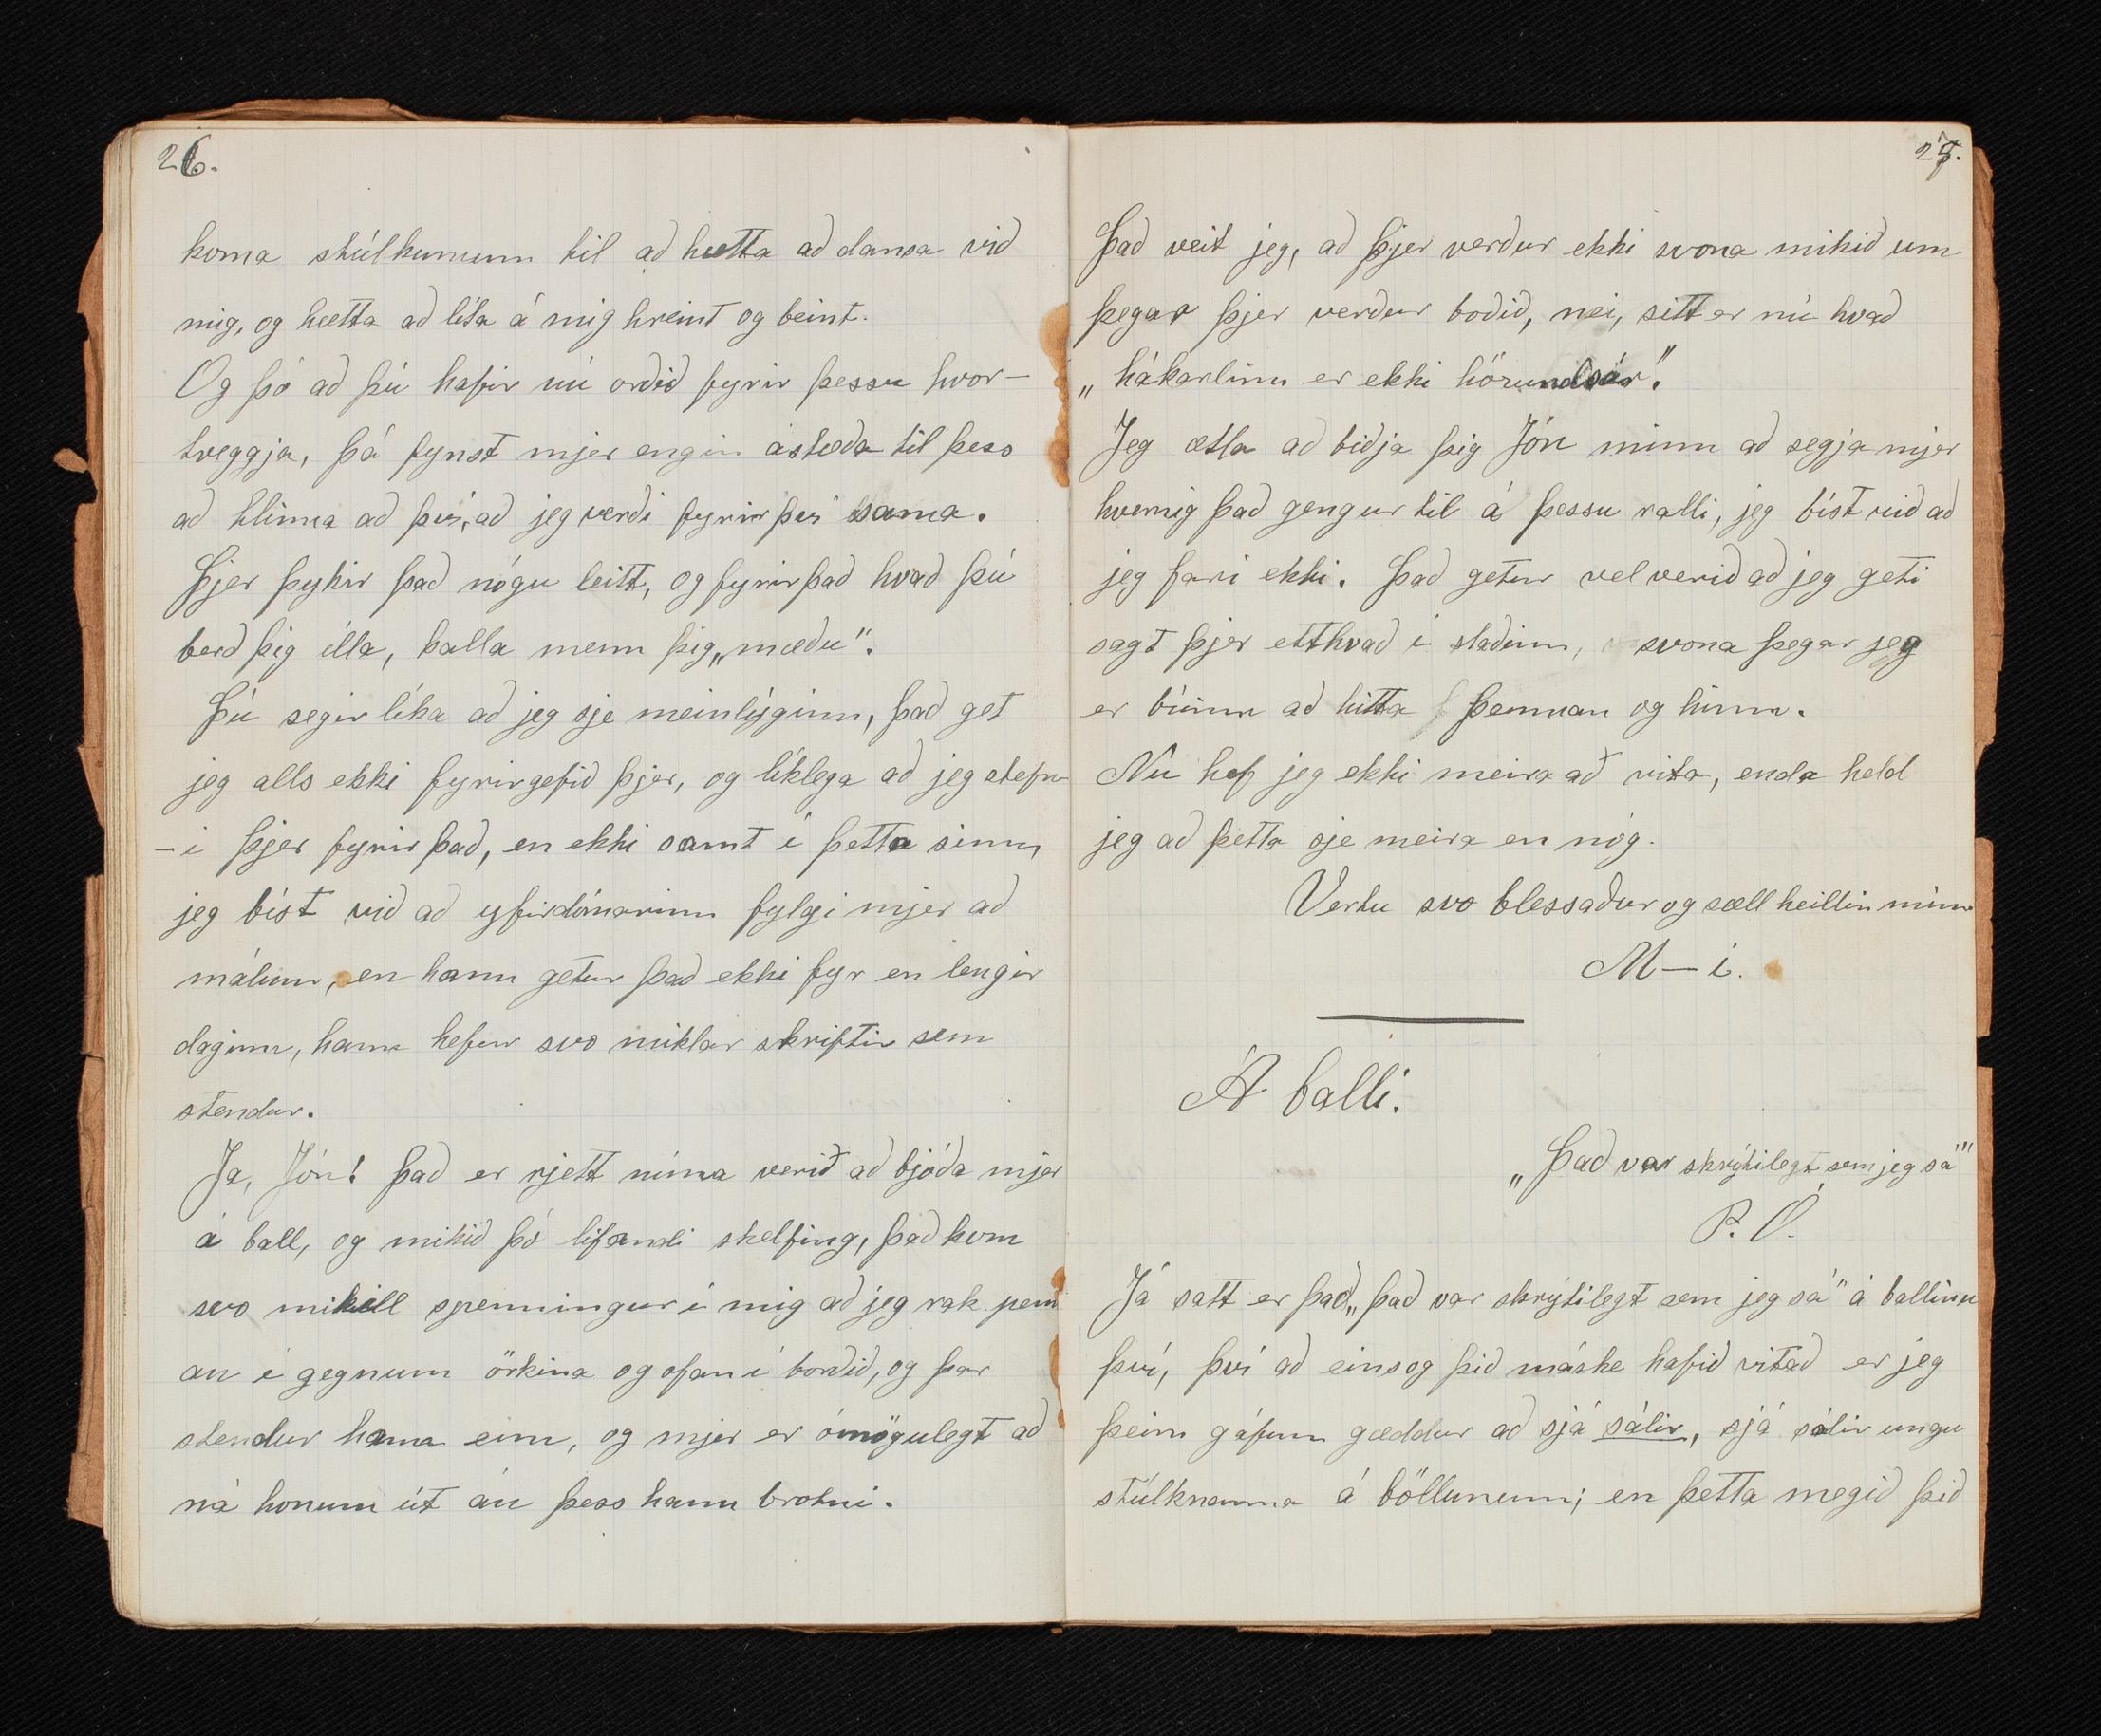 26.
koma stúlkunum til að hætta að dansa við
mig, og hætta að líta á mig hreint og beint.
Og þó að þú hafir nú orðið fyrir þessu hvor-
tveggja, þá fynst mjer engin ástæða til þess
að hlinna að því, að jeg verði fyrir því sama.
Þjer þykir það nógu leitt, og fyrir það hvað þú
berð þig illa, kalla menn þig „mæðu".
Þú segir líka að jeg sje meinlýginn, það get
jeg alls ekki fyrirgefið þjer, og líklega að jeg stefn-
-i þjer fyrir það, en ekki samt í þetta sinn,
jeg bíst við að yfirdómarinn fylgi mjer að
málum, en hann getur það ekki fyr en lengir
daginn, hann hefur svo miklar skriftir sem
stendur.
Ja, Jón! það er rjett núna verið að bjóða mjer
á ball, og mikið þó lifandi skelfing, það kom
svo mikill spenningur í mig að jeg rak penn
an í gegnum örkina og ofan í borðið, og þar
stendur hann einn, og mjer er ómögulegt að
ná honum út án þess hann brotni.
27.
Það veit jeg, að þjer verður ekki svona mikið um
þegar þjer verður boðið, nei, sitt er nú hvað
„hákarlinn er ekki hörundsár".
Jeg ætla að biðja þig Jón minn að segja mjer
hvernig það gengur til á þessu ralli, jeg bíst við að
jeg fari ekki. Það getur vel verið að jeg geti
sagt þjer etthvað í staðinn, svona þegar jeg
er búinn að hitta þennan og hinn.
Nú hef jeg ekki meira að rita, enda held
jeg að þetta sje meira en nóg.
Vertu svo blessaður og sæll heillin mín
M-i.
Á balli.
„Það var skrýtilegt sem jeg sá"
P. Ó.
Já satt er það „það var skrýtilegt sem jeg sá" á ballinu
því, því að eins og þið máske hafið vitað er jeg
þeim gáfum gæddur að sjá sálir, sjá sálir ungu
stúlknanna á böllunum; en þetta megið þið